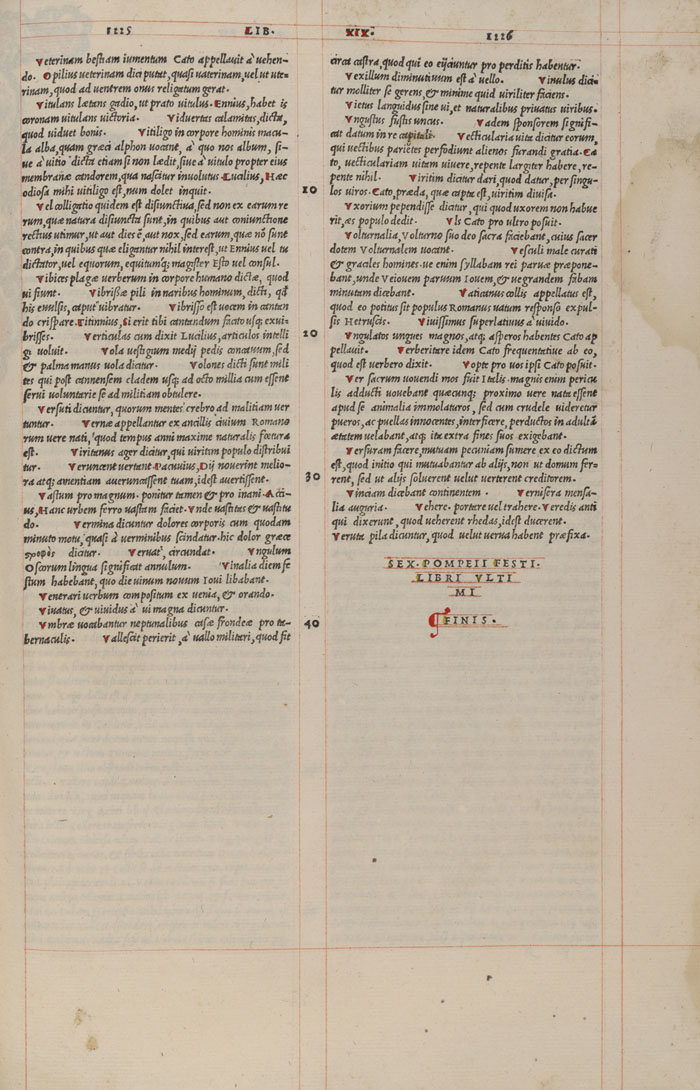 1125 LIB. XIX. 1126
Veterinam bestiam iumentum Cato appellauit à uehen-
do. Opilius ueterinam dici putat, quasi uaterinam, uel ut ute-
rinam, quod ad uentrem onus religatum gerat.
Vitulans lætans gaudio, ut prato uitulus. Ennius, habet is
coronam uitulans uictoria. Viduertas calamitas, dicta,
quod uiduet bonis. Vitiligo in corpore hominis macu-
la alba, quam græci alphon uocant, à quo nos album, si-
ue à uitio dicta etiam si non lædit, siue à uitulo propter eius
membranæ candorem, qua nascitur inuolutus. Lucilius, Hæc
odiosa mihi uitiligo est, num dolet inquit.
Vel colligatio quidem est disiunctiua, sed non ex earum re
rum, quæ natura disiuncta sunt, in quibus aut coniunctione
rectius utimur, ut aut dies ē, aut nox, sed earum, quæ nō sunt
contra, in quibus quæ eligantur nihil interest, ut Ennius uel tu
dictator, uel equorum, equitumq; magister Esto uel consul.
Vibices plagæ uerberum in corpore humano dictæ, quod
ui fiunt. Vibrissæ pili in naribus hominum, dicti, qđ
his euulsis, caput uibratur. Vibrisso est uocem in cantan
do crispare. Titinnius, Si erit tibi cantandum facito usq; exui-
brisses. Verticulas cum dixit Lucilius, articulos intelli
gi uoluit. Vola uestigium medij pedis concauum, sed
& palma manus uola dicitur. Volones dicti sunt mili
tes qui post cannensem cladem usq; ad octo millia cum essent
serui uoluntarie se ad militiam obtulere.
Versuti dicuntur, quorum mentes crebro ad malitiam uer
tuntur. Vernæ appellantur ex ancillis ciuium Romano
rum uere nati, quod tempus anni maxime naturalis fœtura
est. Viritanus ager dicitur, qui uiritim populo distribui
tur. Veruncent uertant. Pacuuius, Dij nouerint melio-
ra atq; amentiam aueruncassent tuam, idest auertissent.
Vastum pro magnum. ponitur tamen & pro inani. Acci-
us, Hanc urbem ferro uastam faciet. Vnde uastitas & uastitu
do. Vermina dicuntur dolores corporis cum quodam
minuto motu, quasi à uerminibus scindatur. hic dolor græce
στροφὸς dicitur. Veruat, circundat. Vngulum
Oscorum lingua significat annulum. Vinalia diem fe
stum habebant, quo die uinum nouum Ioui libabant.
Venerari uerbum compositum ex uenia, & orando.
Viuatus, & uiuidus à ui magna dicuntur.
Vmbræ uocabantur neptunalibus casæ frondeæ pro ta-
bernaculis. Vallescit perierit, à uallo militari, quod fit
10
20
30
40
circa castra, quod qui eo eijciuntur pro perditis habentur.
Vexillum diminutiuum est à uello. Vinulus dici-
tur molliter se gerens, & minime quid uiriliter faciens.
Vietus languidus sine ui, et naturalibus priuatus uiribus.
Vngustus fustis uncus. Vadem sponsorem signifi-
cat datum in re capitali. Vecticularia uita dicitur eorum,
qui uectibus parietes perfodiunt alienos furandi gratia. Ca
to, uecticulariam uitam uiuere, repente largiter habere, re-
pente nihil. Viritim dicitur dari, quod datur, per singu-
los uiros. Cato, præda, quæ capta est, uiritim diuisa.
Vxorium pependisse dicitur, qui quod uxorem non habue
rit, æs populo dedit. Vls Cato pro ultro posuit.
Volturnalia, Volturno suo deo sacra faciebant, cuius sacer
dotem Volturnalem uocant. Vesculi male curati
& graciles homines. ue enim syllabam rei paruæ præpone-
bant, unde Veiouem paruum Iouem, & uegrandem fabam
minutam dicebant. Vaticanus collis appellatus est,
quod eo potitus sit populus Romanus uatum responso expul-
sis Hetruscis. Viuissimus superlatiuus à uiuido.
Vngulatos ungues magnos, atq; asperos habentes Cato ap
pellauit. Verberitare idem Cato frequentatiue ab eo,
quod est uerbero dixit. Vopte pro uos ipsi Cato posuit.
Ver sacrum uouendi mos fuit Italis. magnis enim pericu
lis adducti uouebant quæcunq; proximo uere nata essent
apud se animalia immolaturos, sed cum crudele uideretur
pueros, ac puellas innocentes, interficere, perductos in adultā
ætatem uelabant, atq; ita extra fines suos exigebant.
Versuram facere, mutuam pecuniam sumere ex eo dictum
est, quod initio qui mutuabantur ab alijs, non ut domum fer-
rent, sed ut alijs soluerent uelut uerterent creditorem.
Vinciam dicebant continentem. Vernisera mensa-
lia auguria. Vehere. portare uel trahere. Veredis anti
qui dixerunt, quod ueherent rhedas, idest ducerent.
Veruta pila dicuntur, quod uelut uerua habent præfixa.
SEX. POMPEII FESTI.
LIBRI VLTI
MI
FINIS.